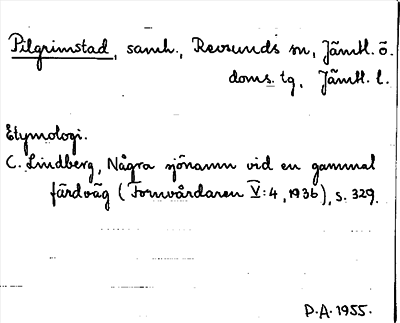 Pilgrimstad, samh., Revsunds sn, Jämtl. ö.
doms. tg, Jämtl. l.
Etymologi.
C. Lindberg, Några sjönamn vid en gammal
färdväg (Fornvårdaren V:4, 1936), s. 329.
P.A. 1955.